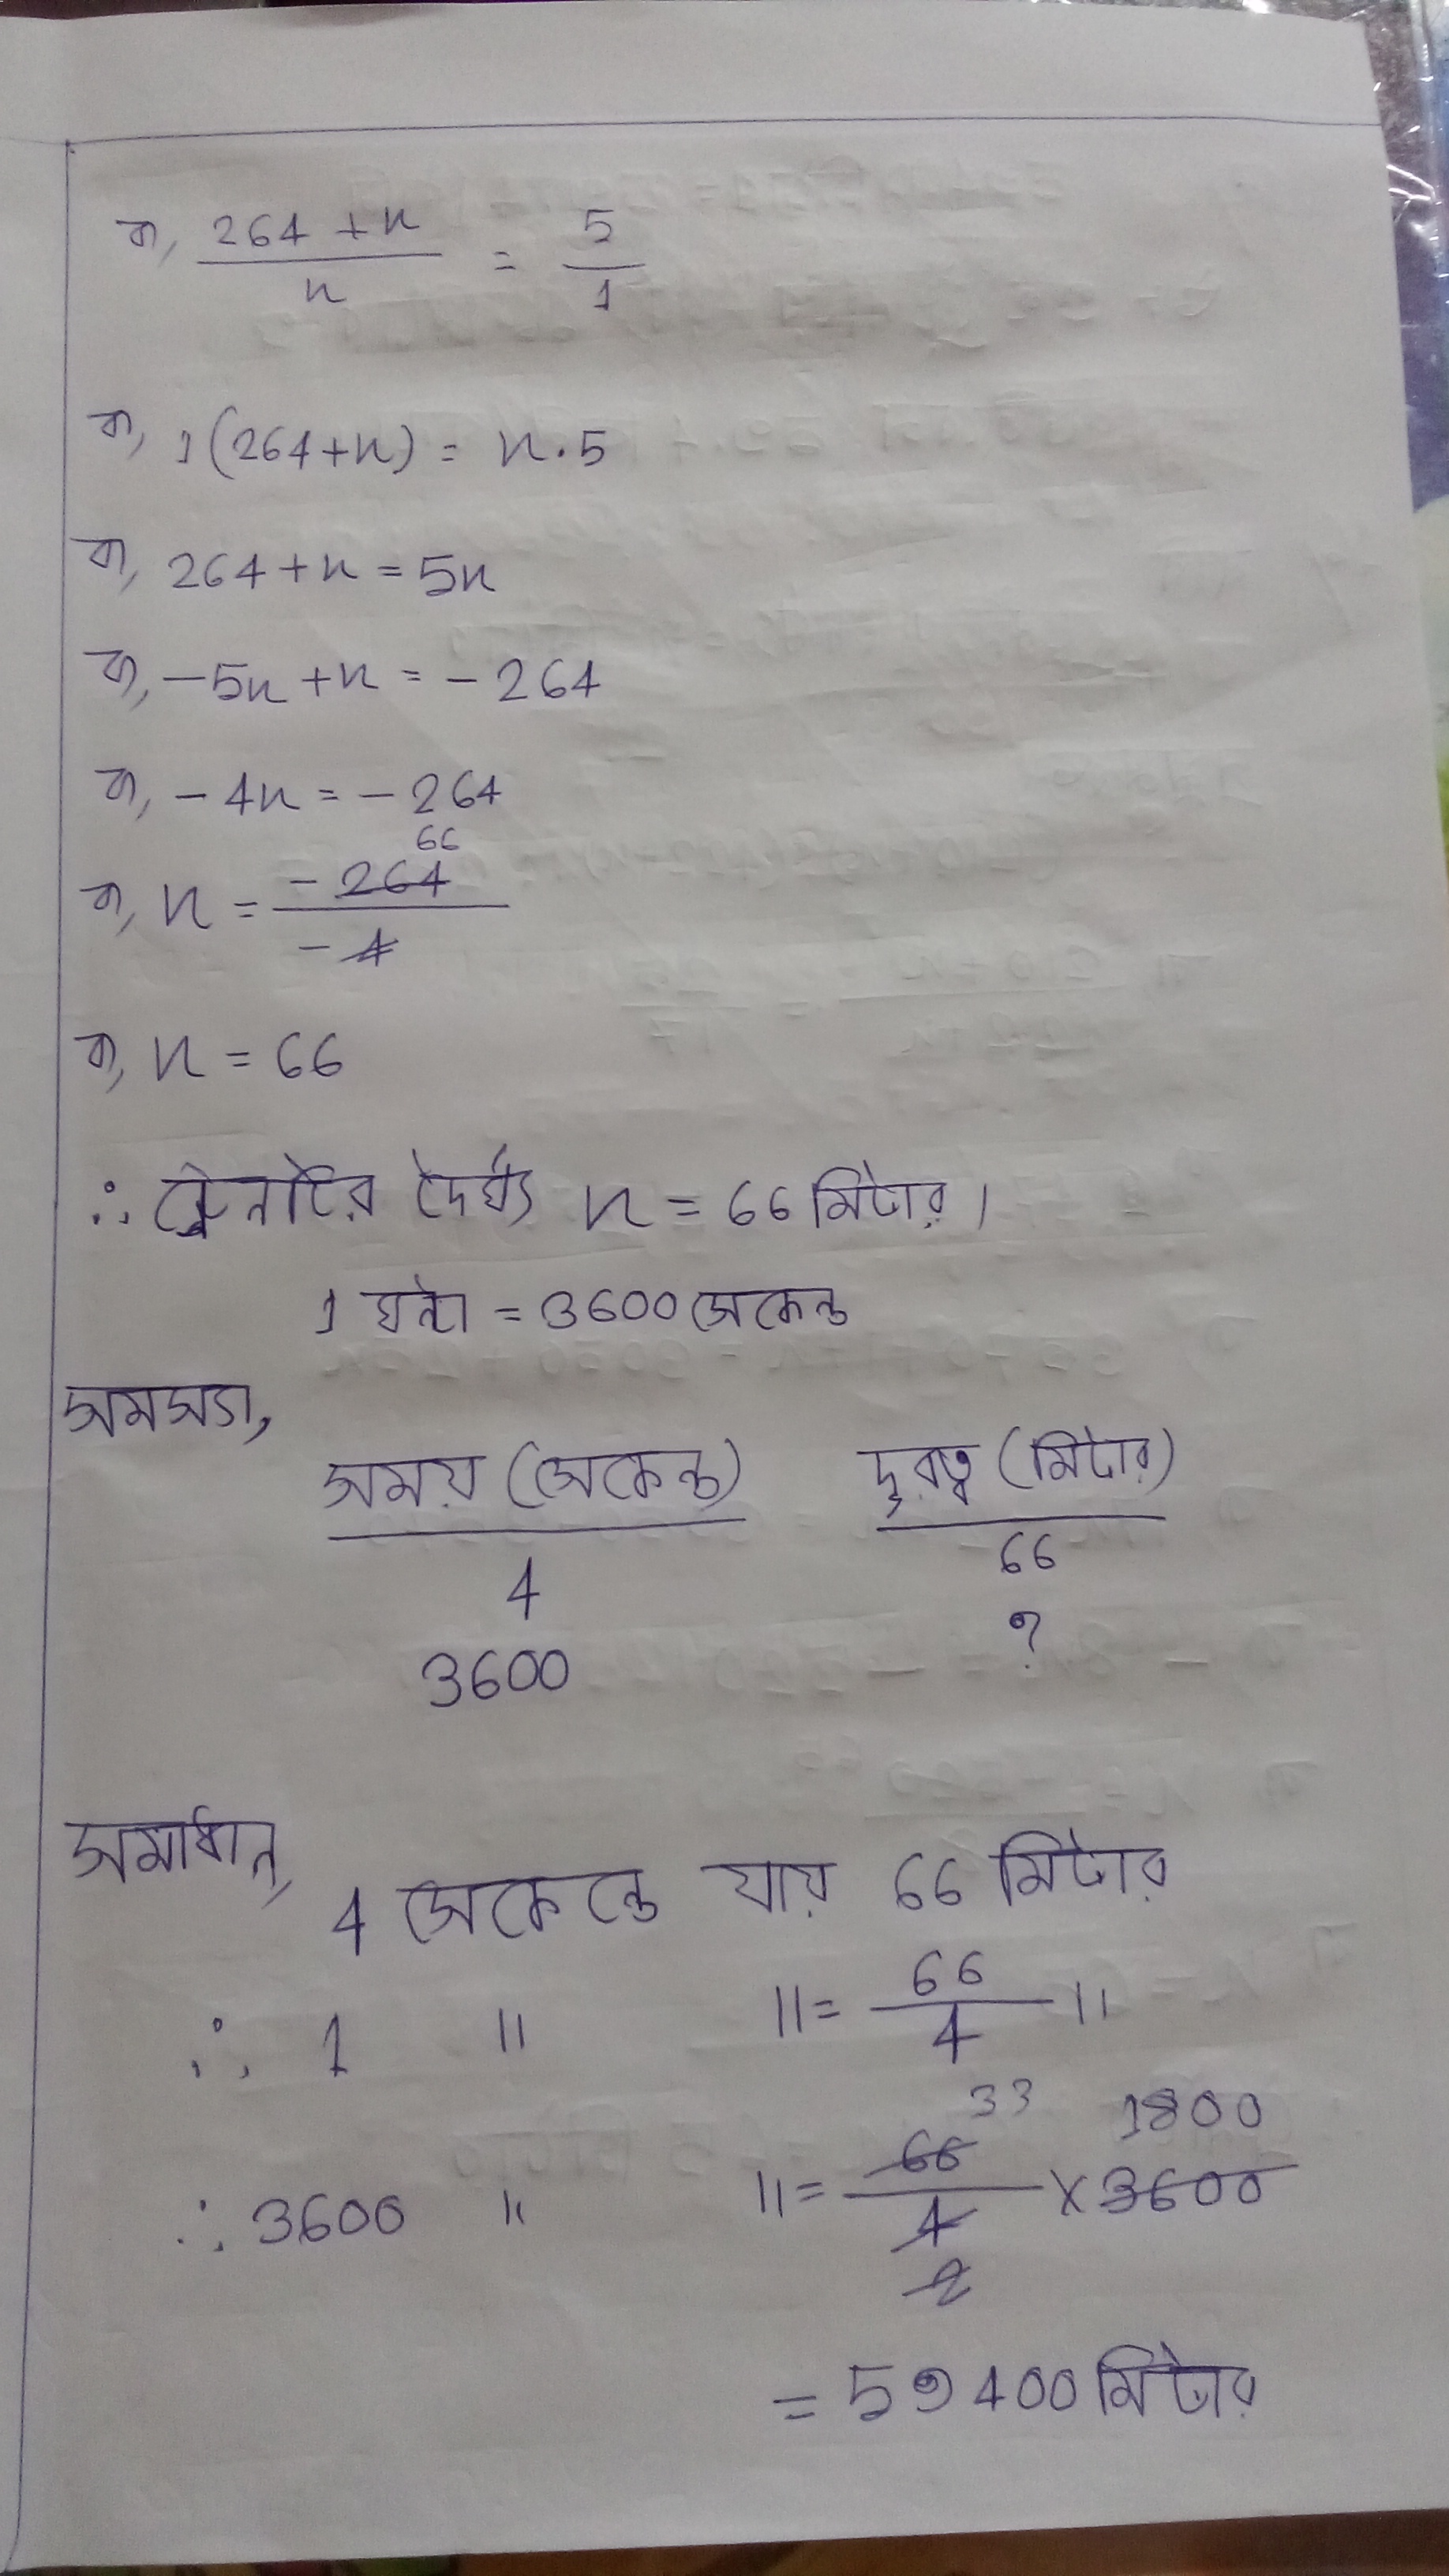 বা, 264 + x / x = 5 / 1
বা, 1(264+x) = x.5
বা, 264+x = 5x
বা, -5x+x = -264
বা, -4x = -264
66
বা, x = -264 / -4
বা, x = 66
∴ ট্রেনটির দৈর্ঘ্য x = 66 মিটার।
1 ঘন্টা = 3600 সেকেন্ড
সমস্যা,
সময় (সেকেন্ড) দূরত্ব (মিটার)
4 66
3600 ?
সমাধান,
4 সেকেন্ডে যায় 66 মিটার
∴ 1 " " = 66 / 4 "
33 1800
∴ 3600 " " = 66 / 4 × 3600
2
= 59400 মিটার